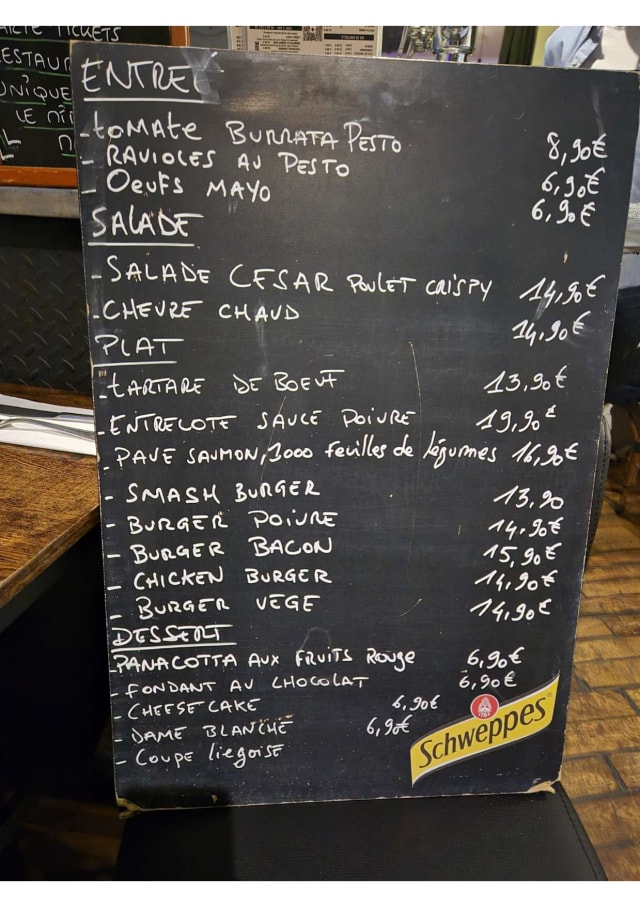 TICKETS
ESTAUR
UNIQUE
LE
ENTREE
- tomate BURRATA PESTO 8,90€
- RAVIOLES AU PESTO 6,90€
- OEUFS MAYO 6,90€
SALADE
- SALADE CESAR POULET CRISPY 14,90€
- CHEVRE CHAUD 14,90€
PLAT
- TARTARE DE BOEUF 13,90€
- ENTRECOTE SAUCE POIVRE 19,90€
- PAVE SAUMON, 1000 feuilles de légumes 16,90€
- SMASH BURGER 13,90
- BURGER POIVRE 14,90€
- BURGER BACON 15,90€
- CHICKEN BURGER 14,90€
- BURGER VEGE 14,90€
DESSERT
- PANACOTTA AUX FRUITS ROUGE 6,90€
- FONDANT AU CHOCOLAT 6,90€
- CHEESE CAKE 6,90€
- DAME BLANCHE 6,90€
- COUPE liegoise
Schweppes